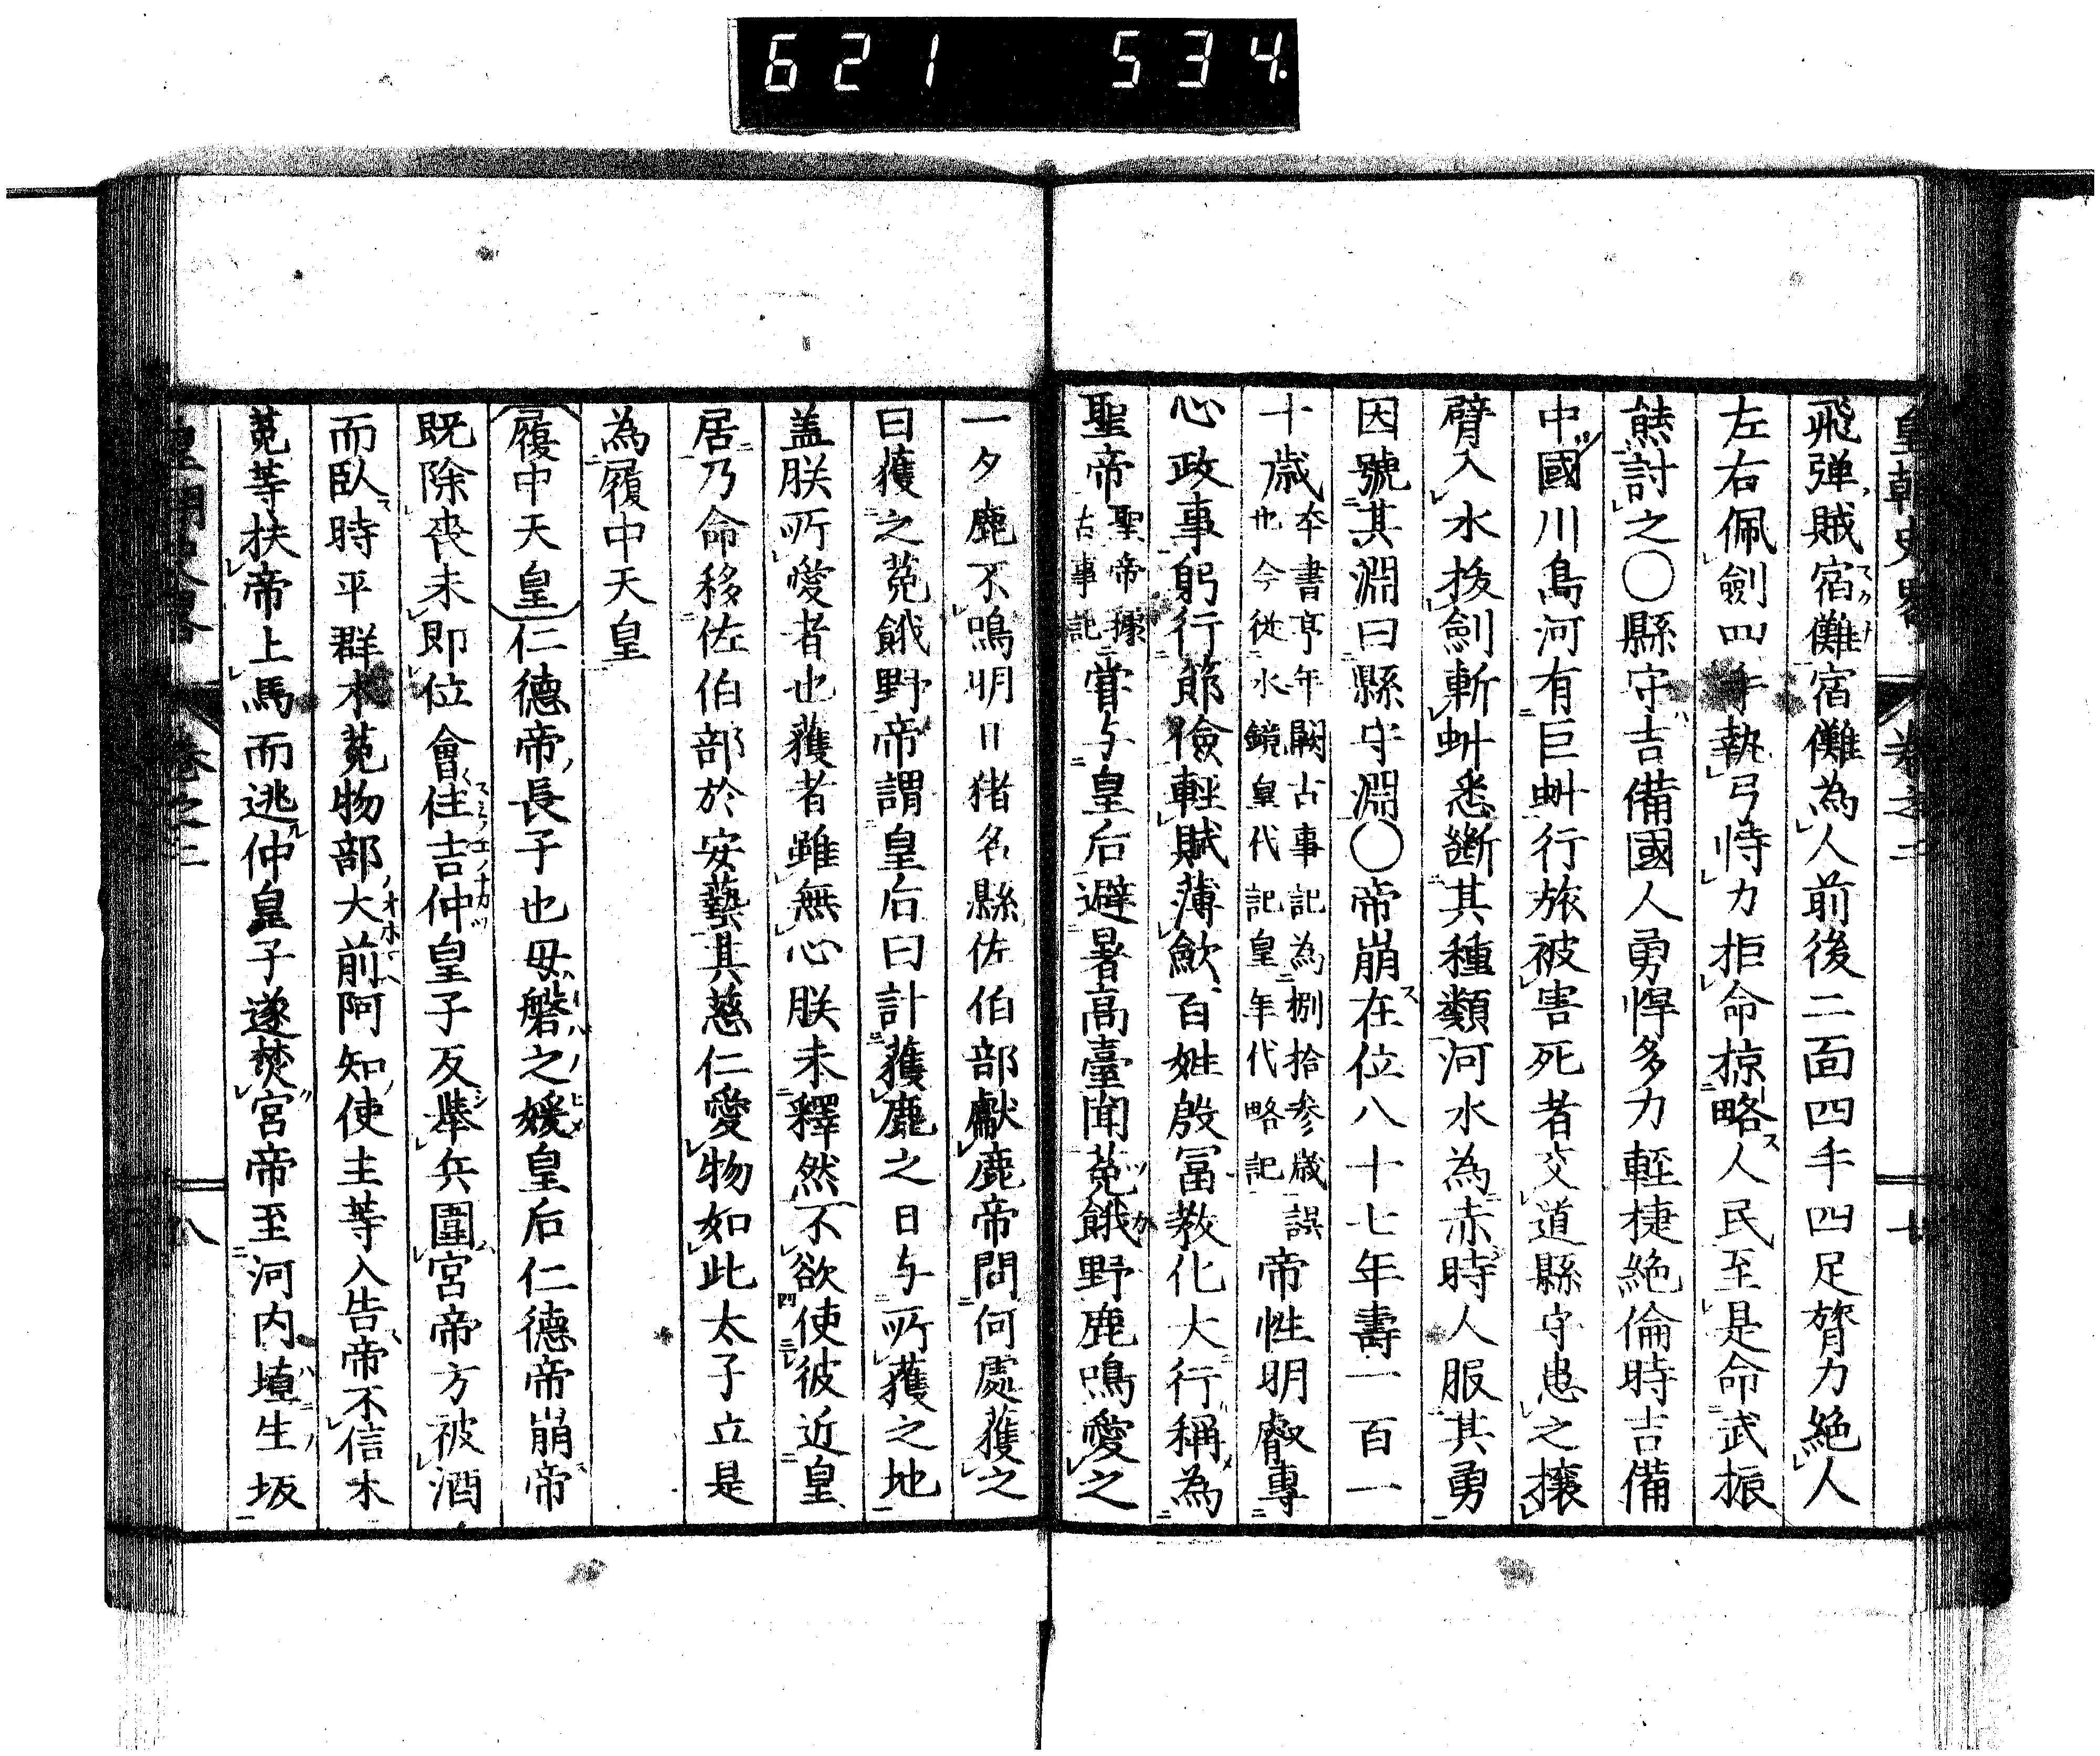 621 534.
皇朝史畧 卷之二 七
飛弾賊宿儺宿儺為人前後二面四手四足膂力絶人
左右佩劍四手執弓恃力拒命掠略人民至是命武振
熊討之〇縣守吉備國人勇悍多力輕捷絶倫時吉備
中國川島河有巨虯行旅被害死者交道縣守患之攘
臂入水拔劍斬虯悉斷其種類河水為赤時人服其勇
因號其淵曰縣守淵〇帝崩在位八十七年壽一百一
十歳本書亨年闕古事記為捌拾参歳誤也今從水鏡皇代記皇年代略記帝性明叡專
心政事躬行節儉輕賦薄斂百姓殷冨教化大行稱為
聖帝聖帝據古事記嘗与皇后避暑高臺聞菟餓野鹿鳴愛之
一夕鹿不鳴明日猪名縣佐伯部獻鹿帝問何處獲之
曰獲之菟餓野帝謂皇后曰計獲鹿之日与所獲之地
盖朕所愛者也獲者雖無心朕未釋然不欲使彼近皇
居乃命移佐伯部於安藝其慈仁愛物如此太子立是
為履中天皇
履中天皇仁德帝長子也母磐之媛皇后仁德帝崩帝
既除喪未即位會住吉仲皇子反舉兵圍宮帝方被酒
而臥時平群木菟物部大前阿知使主等入告帝不信木
菟等扶帝上馬而逃仲皇子遂焚宮帝至河内埴生坂
皇朝史畧 卷之二 八